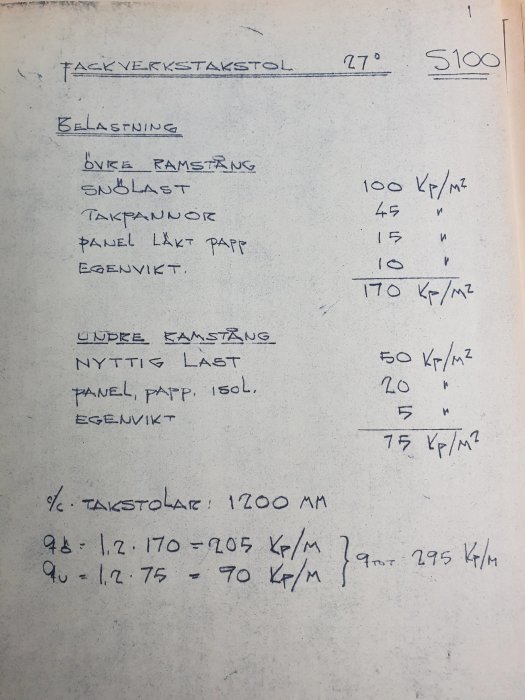 1
FACKVERKSTAKSTOL 27° S100
BELASTNING
ÖVRE RAMSTÅNG
SNÖLAST 100 Kp/M²
TAKPANNOR 45 "
PANEL LÄKT PAPP 15 "
EGENVIKT. 10 "
170 Kp/M²
UNDRE RAMSTÅNG
NYTTIG LAST 50 Kp/M²
PANEL, PAPP. ISOL. 20 "
EGENVIKT 5 "
75 Kp/M²
c/c. TAKSTOLAR: 1200 MM
qö = 1,2 · 170 = 205 Kp/M
qu = 1,2 · 75 = 90 Kp/M } qTOT. 295 Kp/M